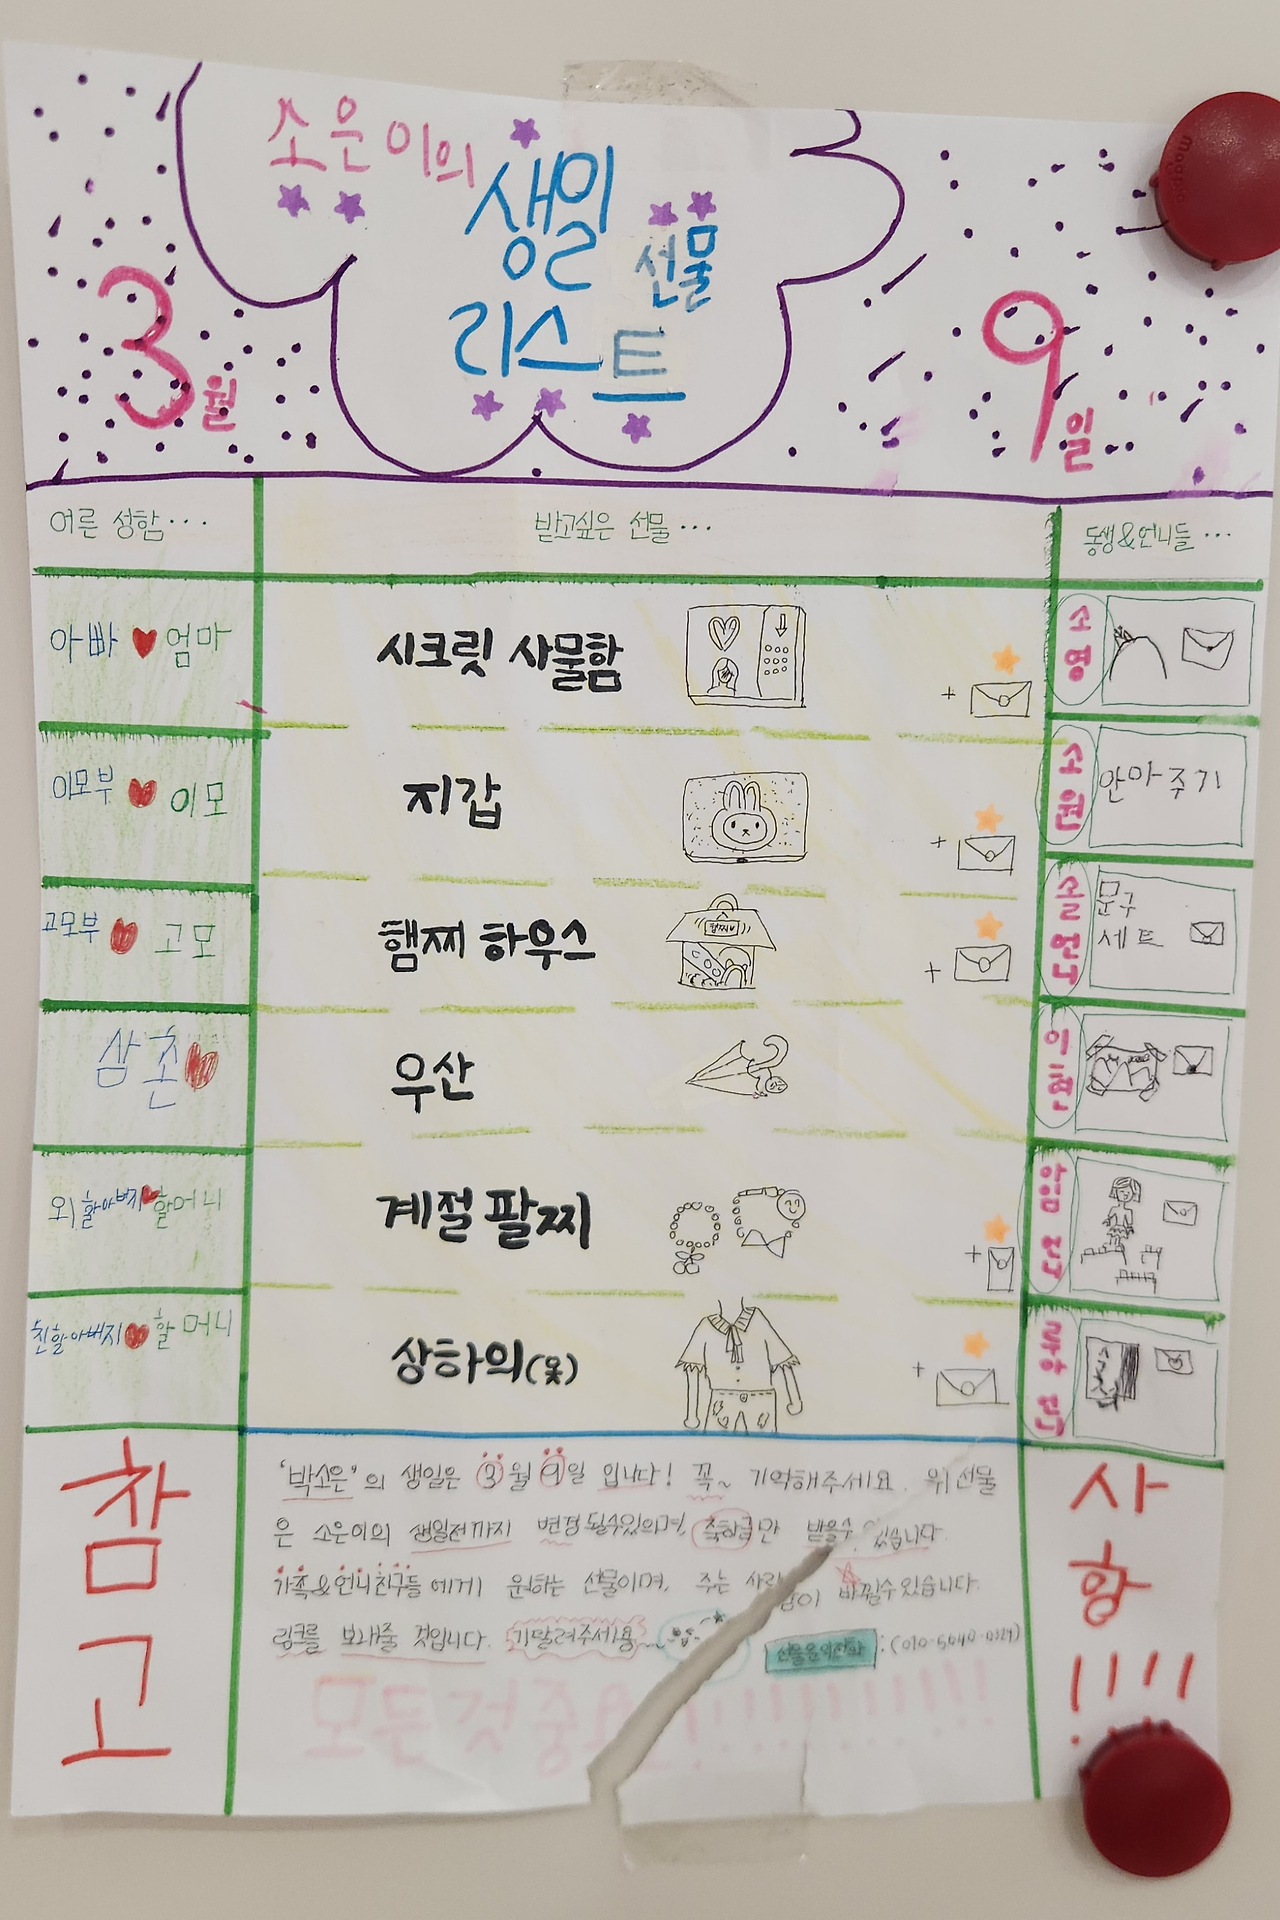 소은이의
생일
선물
리스트
3월
9일
어른 성함···
받고싶은 선물···
동생&언니들···
아빠 엄마
시크릿 사물함
+
소영
이모부 이모
지갑
+
소원
안아주기
고모부 고모
햄찌 하우스
햄찌
+
언니
문구
세트
삼촌
우산
외 할아버지 할머니
계절 팔찌
+
친할아버지 할머니
상하의(옷)
+
참고
사항!!!!
'박소은'의 생일은 3월 9일 입니다! 꼭~ 기억해주세요. 위 선물
은 소은이의 생일전까지 변경 될수있으며, 만 받을수 있습니다.
가족&언니친구들에게 원하는 선물이며, 주는 바뀔수 있습니다.
링크를 보내줄 것입니다. 기달려주세용~
모든것중요!!!!!!!!!!!